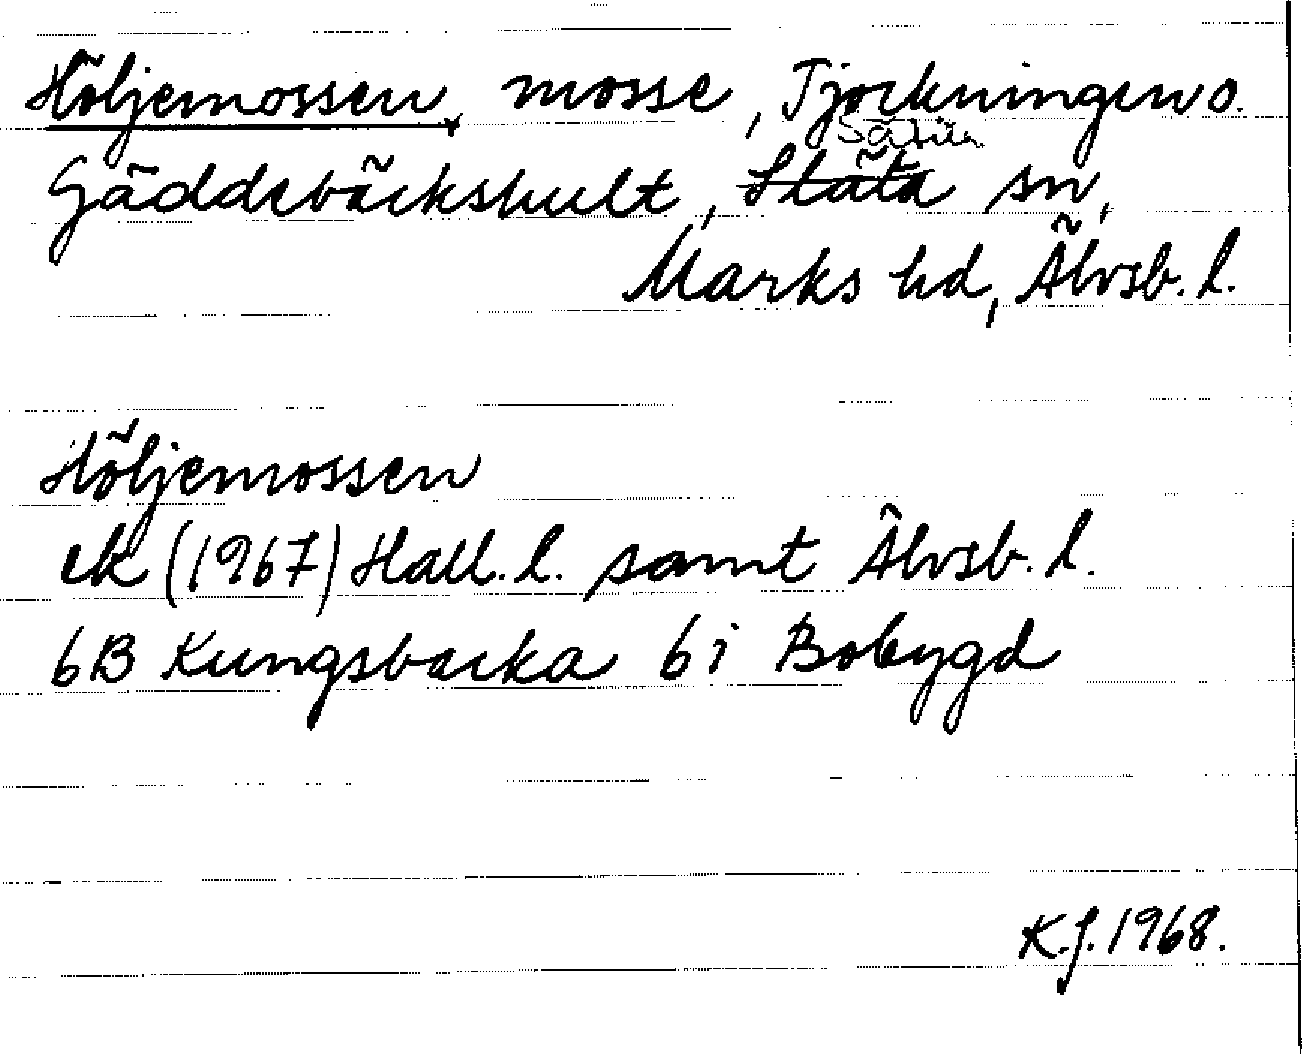 Höljemossen, mosse, Tjockningen o.
Sätila
Gäddebäckshult, Släta sn,
Marks hd, Älvsb. l.
Höljemossen
ek (1967) Hall. l. samt Älvsb. l.
6B Kungsbacka 6i Bobygd
K.J. 1968.